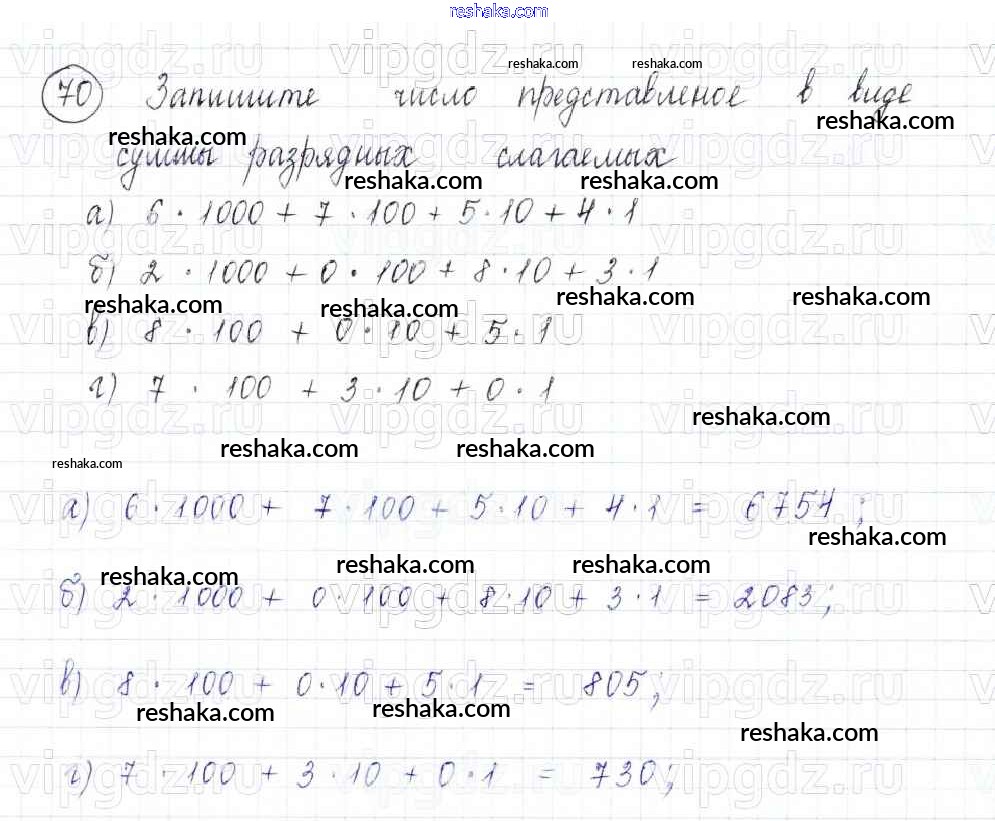 reshaka.com
70 Запишите число представленое в виде
суммы разрядных слагаемых
а) 6 · 1000 + 7 · 100 + 5 · 10 + 4 · 1
б) 2 · 1000 + 0 · 100 + 8 · 10 + 3 · 1
в) 8 · 100 + 0 · 10 + 5 · 1
г) 7 · 100 + 3 · 10 + 0 · 1
а) 6 · 1000 + 7 · 100 + 5 · 10 + 4 · 1 = 6754;
б) 2 · 1000 + 0 · 100 + 8 · 10 + 3 · 1 = 2083;
в) 8 · 100 + 0 · 10 + 5 · 1 = 805;
г) 7 · 100 + 3 · 10 + 0 · 1 = 730;